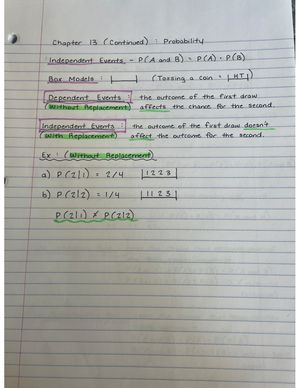 Chapter 13 (Continued) : Probability
Independent Events - P(A and B) = P(A) · P(B)
Box Models : |____| (Tossing a coin = |HT|)
Dependent Events : the outcome of the first draw
(Without Replacement) affects the chance for the second.
Independent Events : the outcome of the first draw doesn't
(With Replacement) affect the outcome for the second.
Ex : (Without Replacement)
a) P(2|1) = 2/4 |1223|
b) P(2|2) = 1/4 |1123|
P(2|1) ≠ P(2|2)